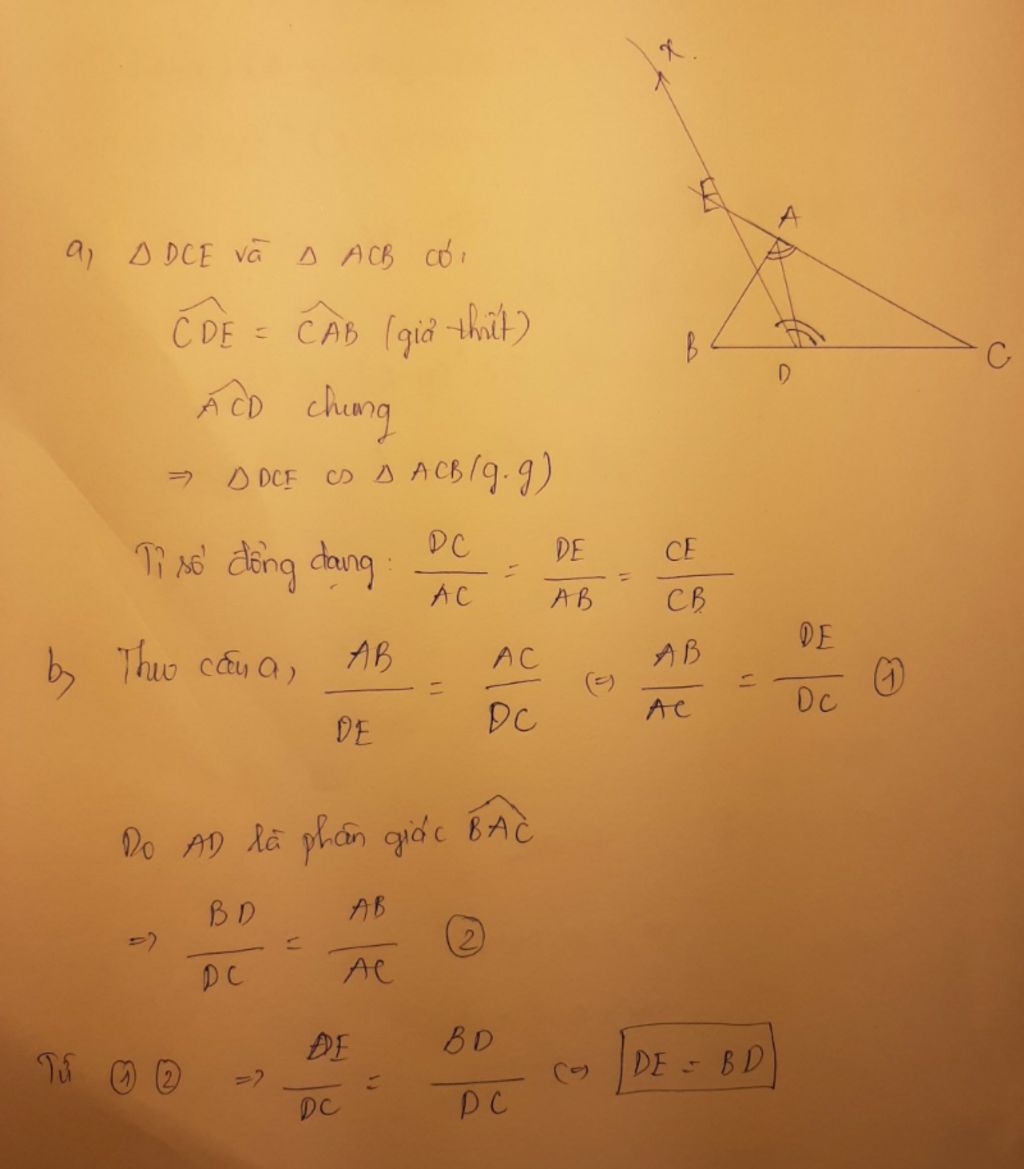 x
E
A
B
D
C
a, Δ DCE và Δ ACB có:
\widehat{CDE} = \widehat{CAB} (giả thiết)
\widehat{ACD} chung
=> Δ DCE ∽ Δ ACB (g.g)
Tỉ số đồng dạng: DC/AC = DE/AB = CE/CB
b, Theo câu a, AB/DE = AC/DC (=) AB/AC = DE/DC ①
Do AD là phân giác \widehat{BAC}
=> BD/DC = AB/AC ②
Từ ① ② => DE/DC = BD/DC (=) DE = BD